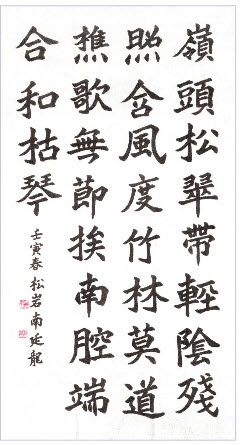 嶺頭松翠帶輕陰殘
照含風度竹林莫道
樵歌無節挨南腔端
合和枯琴
壬寅春松岩南廷龍